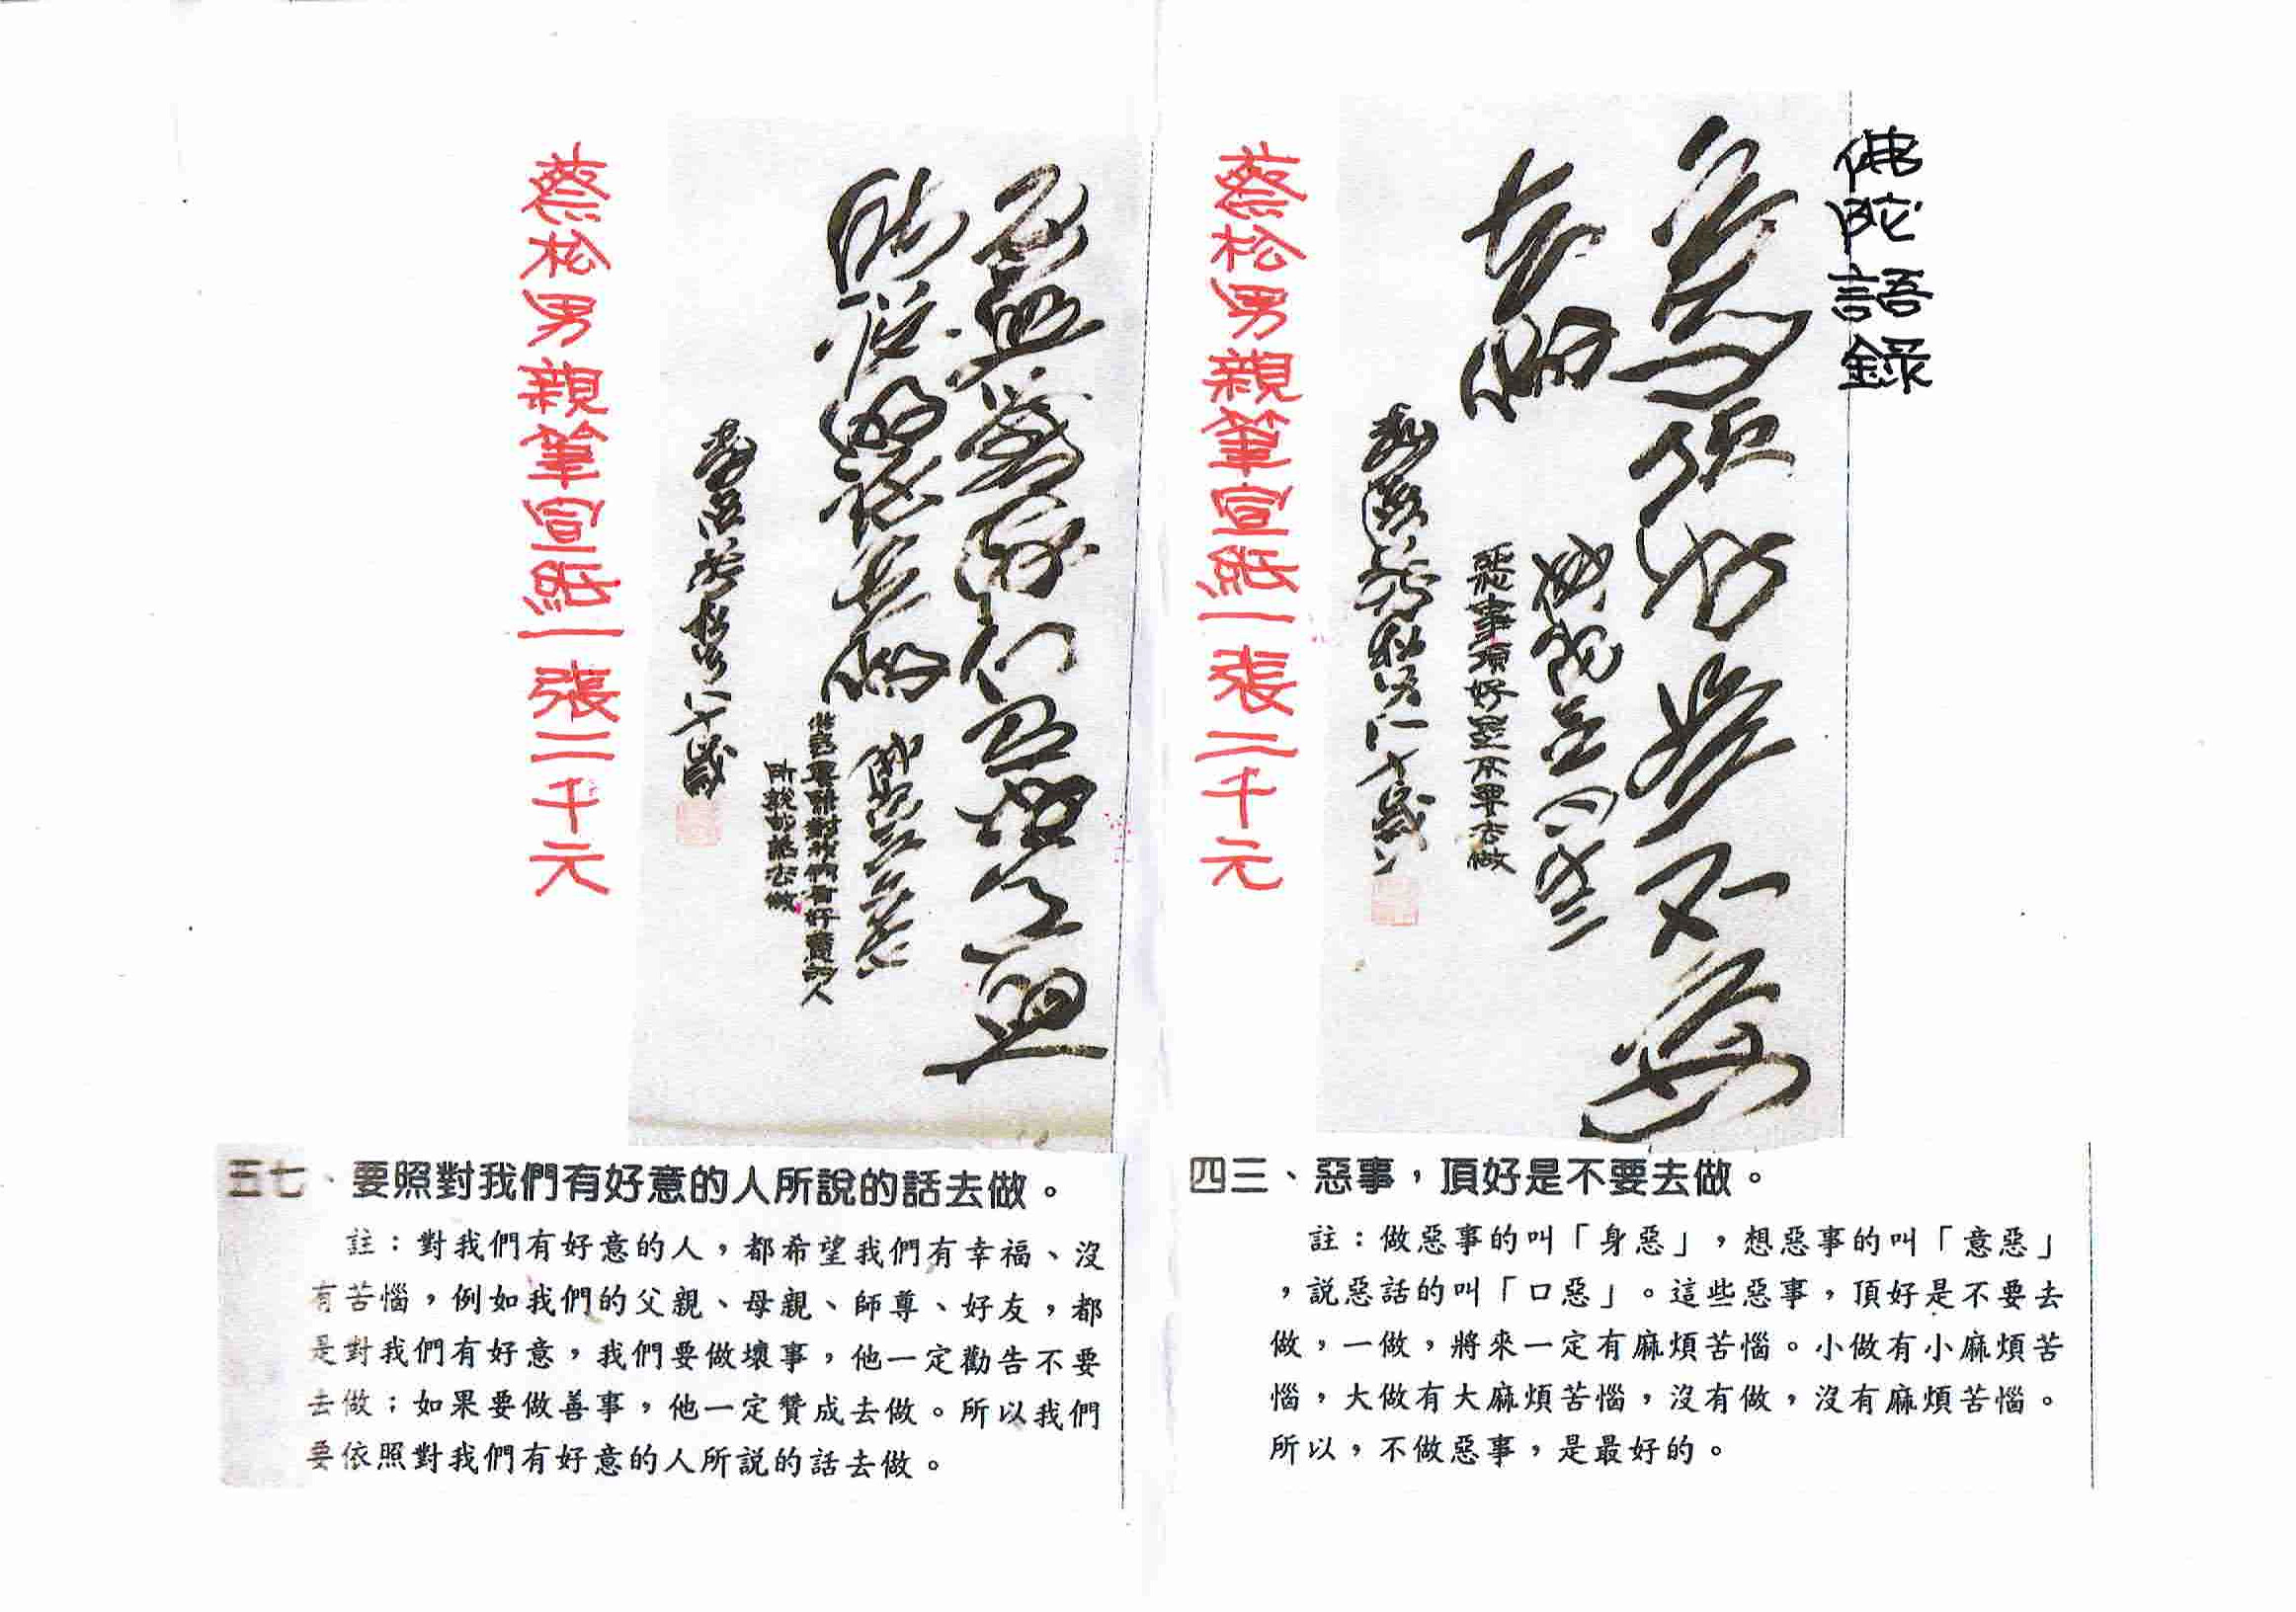 佛陀語錄
惡事頂好是不要
去做
惡事頂好是不要去做
八十歲
蔡松男親筆宣紙一張二千元
四三、惡事，頂好是不要去做。
註：做惡事的叫「身惡」，想惡事的叫「意惡」
，說惡話的叫「口惡」。這些惡事，頂好是不要去
做，一做，將來一定有麻煩苦惱。小做有小麻煩苦
惱，大做有大麻煩苦惱，沒有做，沒有麻煩苦惱。
所以，不做惡事，是最好的。
要照對我們有好意的人
所說的話去做
要照對我們有好意的人
所說的話去做
蔡松男八十歲
蔡松男親筆宣紙一張二千元
三七、要照對我們有好意的人所說的話去做。
註：對我們有好意的人，都希望我們有幸福、沒
有苦惱，例如我們的父親、母親、師尊、好友，都
是對我們有好意，我們要做壞事，他一定勸告不要
去做；如果要做善事，他一定贊成去做。所以我們
要依照對我們有好意的人所說的話去做。